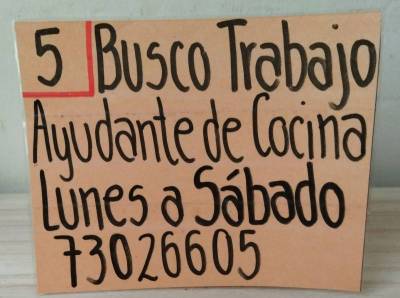 5 Busco Trabajo
Ayudante de Cocina
Lunes a Sábado
73026605